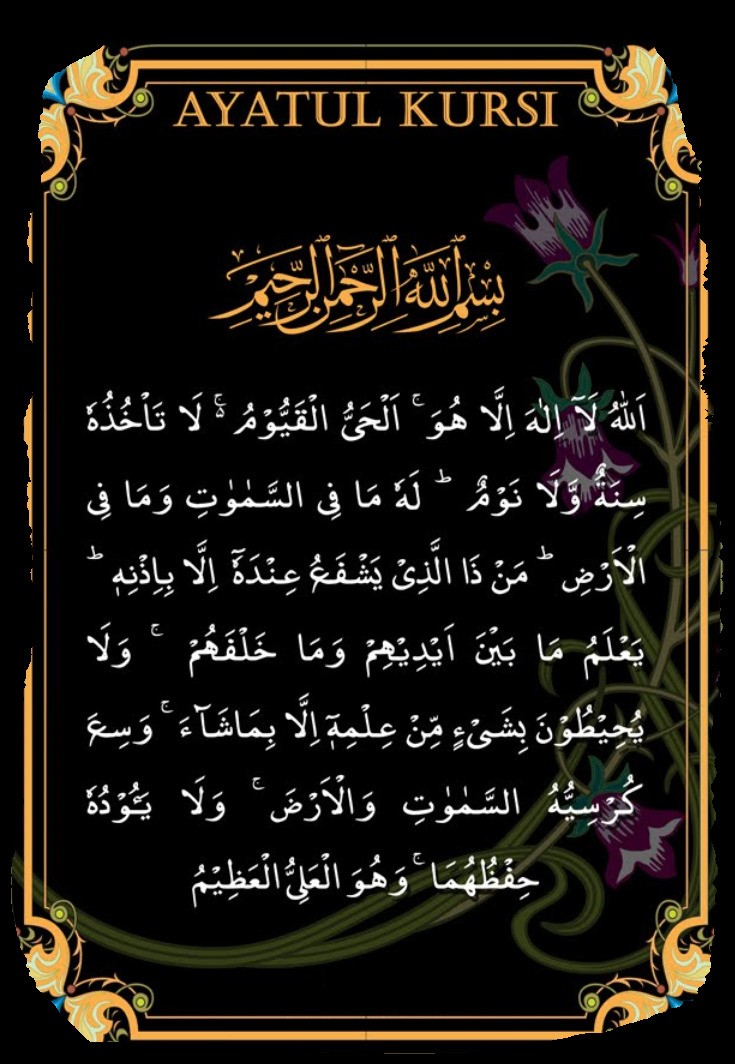 AYATUL KURSI
بِسْمِ اللّٰهِ الرَّحْمٰنِ الرَّحِيْمِ
اَللّٰهُ لَآ اِلٰهَ اِلَّا هُوَ ۚ اَلْحَىُّ الْقَيُّوْمُ ۬ۚ لَا تَاْخُذُهٗ
سِنَةٌ وَّلَا نَوْمٌ ؕ لَهٗ مَا فِى السَّمٰوٰتِ وَمَا فِى
الْاَرْضِ ؕ مَنْ ذَا الَّذِىْ يَشْفَعُ عِنْدَهٗۤ اِلَّا بِاِذْنِهٖ ؕ
يَعْلَمُ مَا بَيْنَ اَيْدِيْهِمْ وَمَا خَلْفَهُمْ ۚ وَلَا
يُحِيْطُوْنَ بِشَىْءٍ مِّنْ عِلْمِهٖۤ اِلَّا بِمَاشَآءَ ۚ وَسِعَ
كُرْسِيُّهُ السَّمٰوٰتِ وَالْاَرْضَ ۚ وَلَا يَـــُٔوْدُهٗ
حِفْظُهُمَا ۚ وَهُوَ الْعَلِىُّ الْعَظِيْمُ